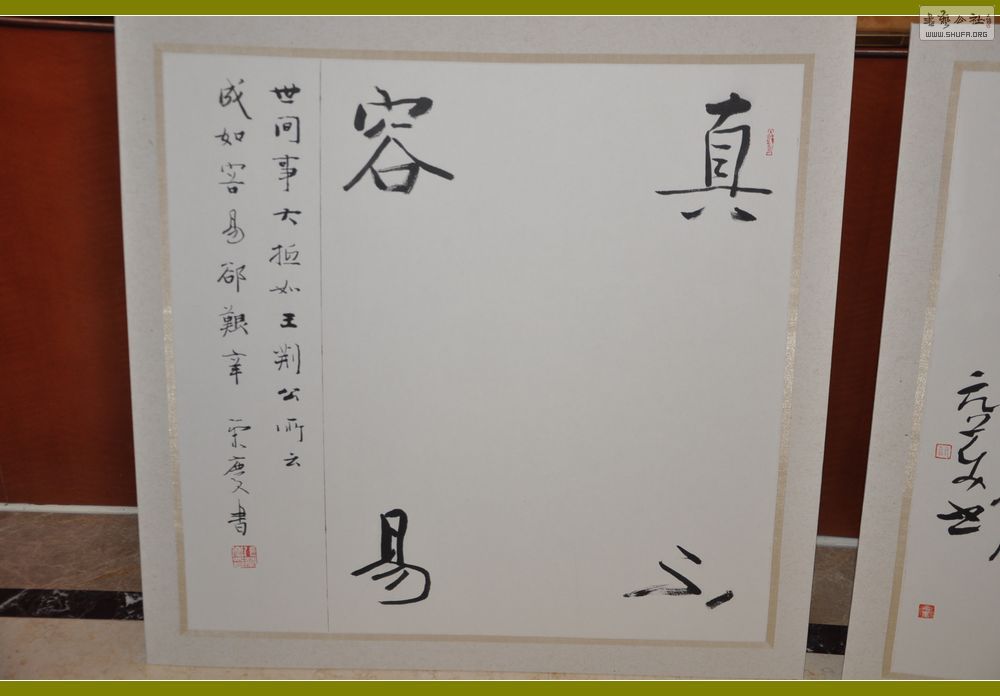 真不
容易
世间事大抵如王荆公所云
成如容易郤艱辛 宋慶文書
書藝公社
WWW.SHUFA.ORG